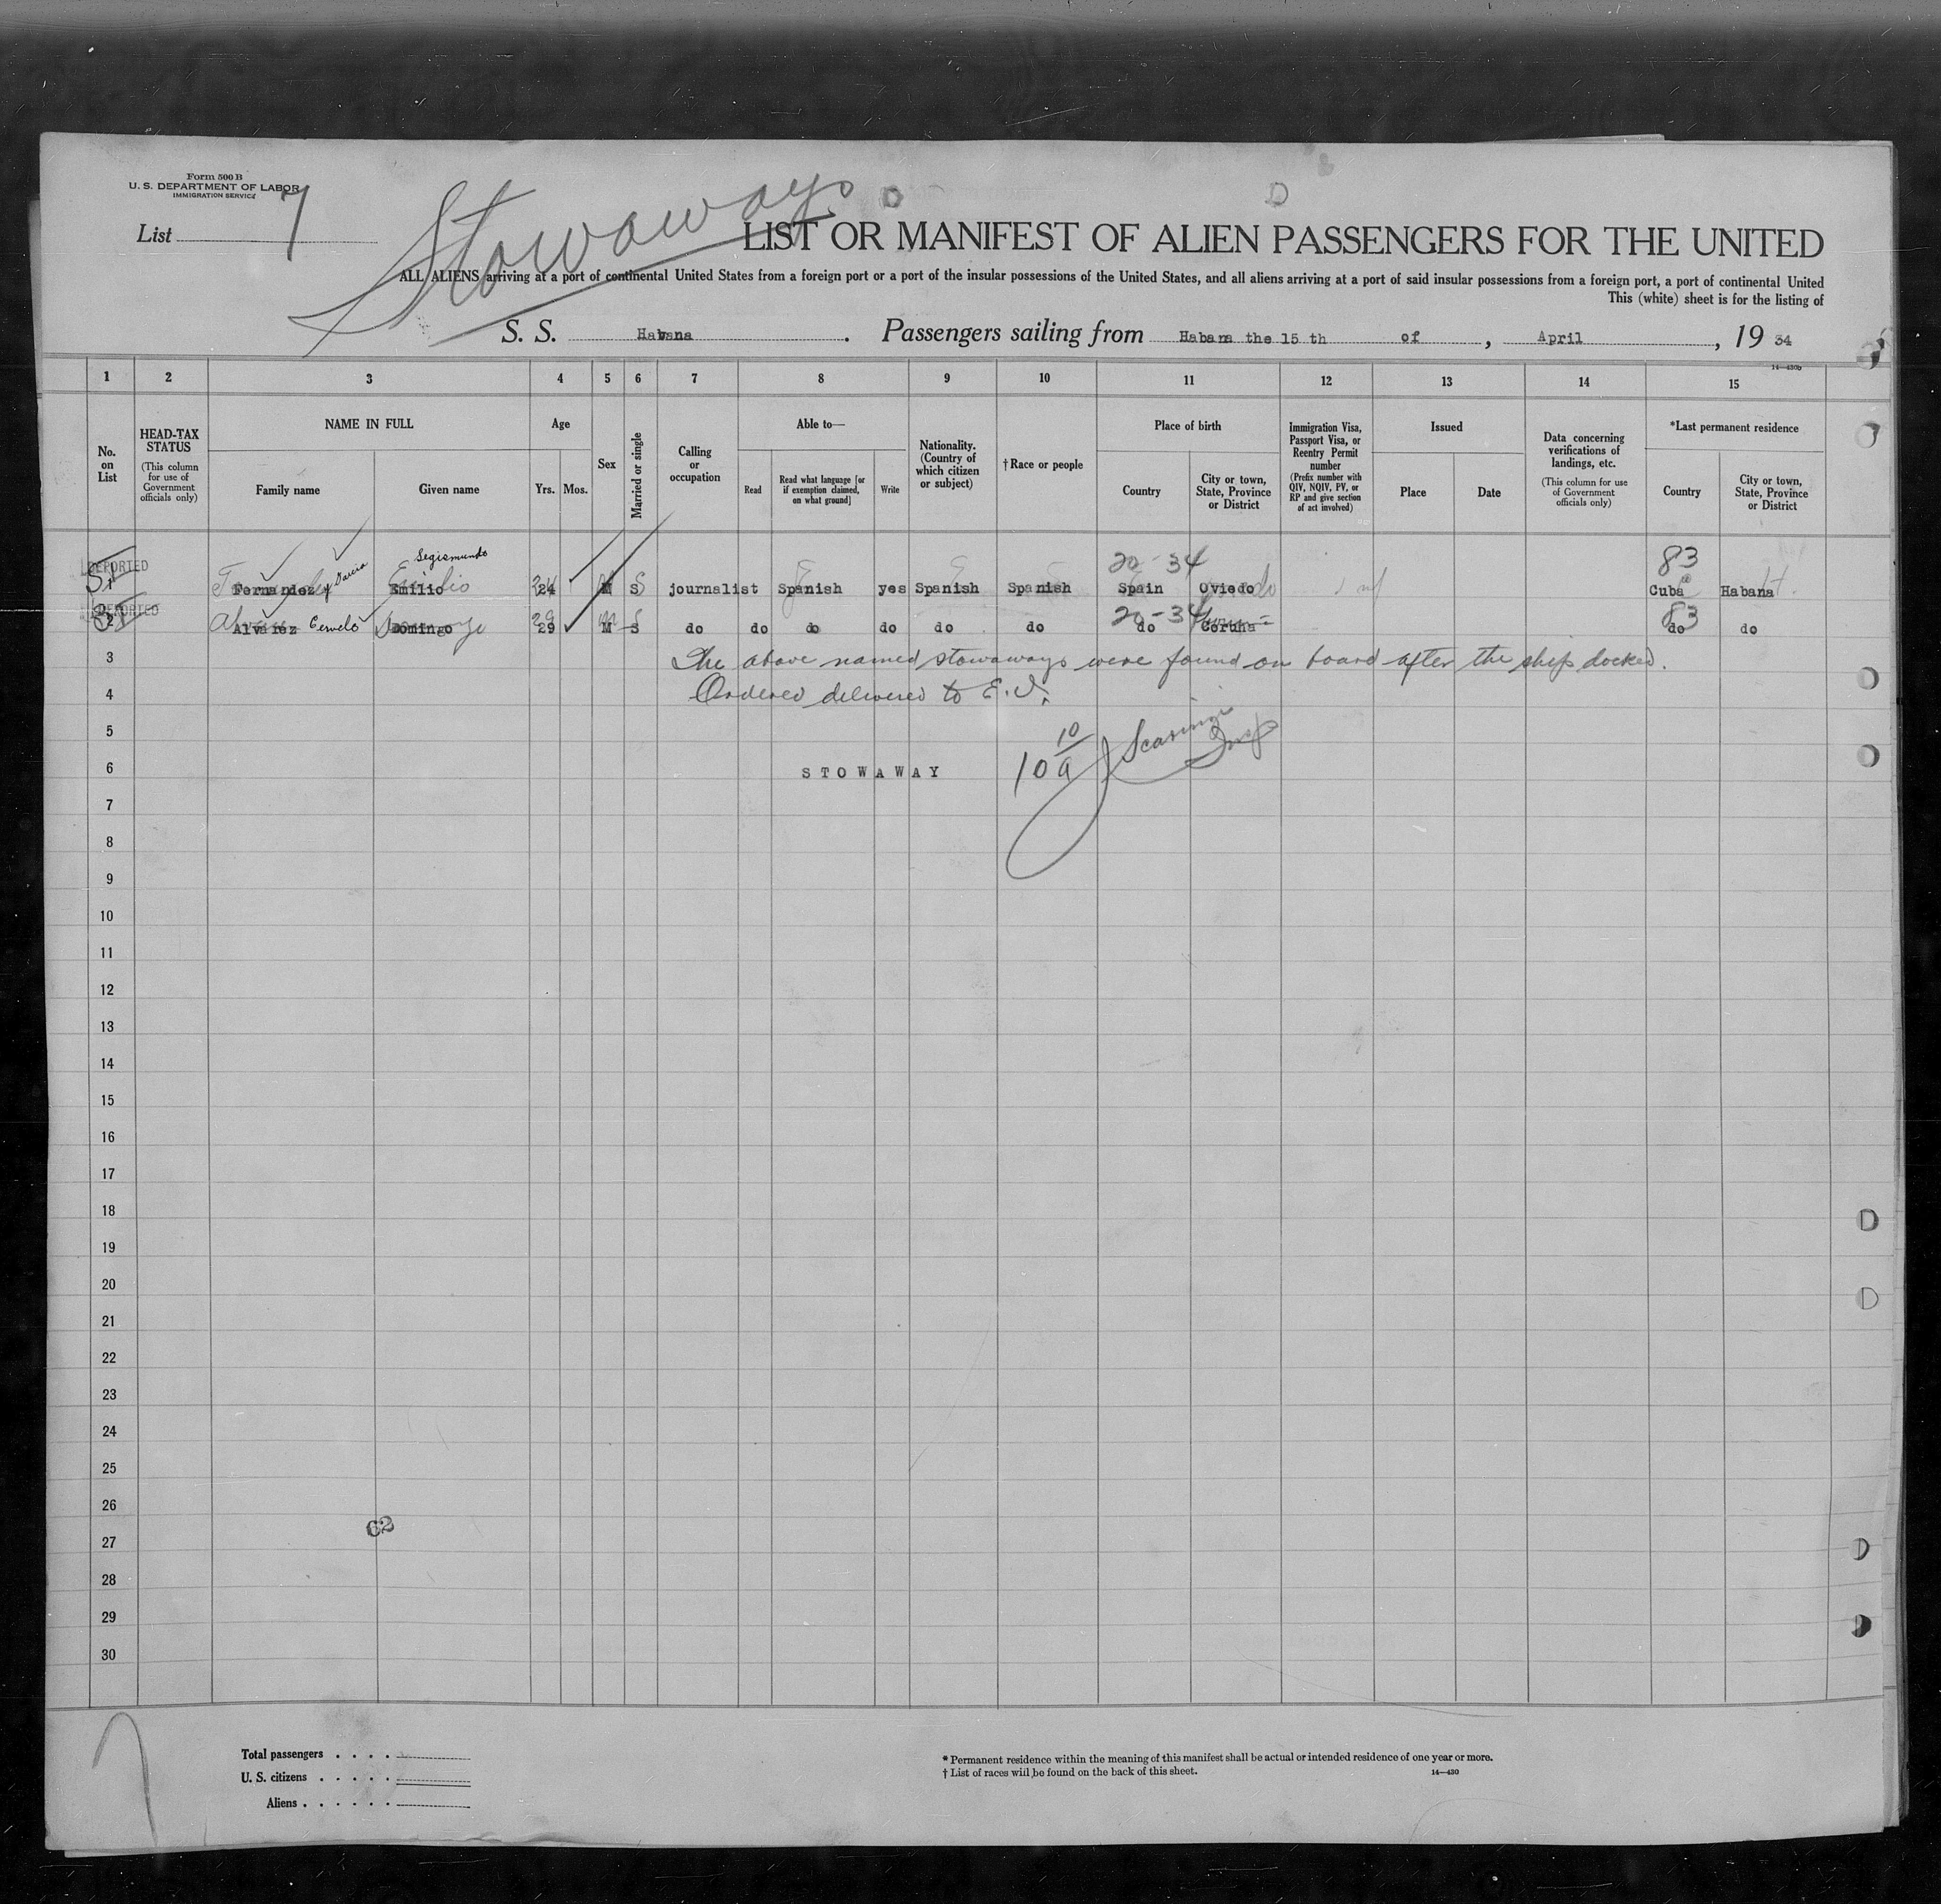 Form 500 B
U. S. DEPARTMENT OF LABOR
IMMIGRATION SERVICE
List 7
Stowaways
LIST OR MANIFEST OF ALIEN PASSENGERS FOR THE UNITED
ALL ALIENS arriving at a port of continental United States from a foreign port or a port of the insular possessions of the United States, and all aliens arriving at a port of said insular possessions from a foreign port, a port of continental United
This (white) sheet is for the listing of
S. S. Habana . Passengers sailing from Habana the 15 th of , April , 19 34
14—430b
1 2 3 4 5 6 7 8 9 10 11 12 13 14 15
No. on List
HEAD-TAX STATUS (This column for use of Government officials only)
NAME IN FULL
Family name Given name
Age
Yrs. Mos.
Sex
Married or single
Calling or occupation
Able to—
Read
Read what language [or if exemption claimed, on what ground]
Write
Nationality. (Country of which citizen or subject)
†Race or people
Place of birth
Country
City or town, State, Province or District
Immigration Visa, Passport Visa, or Reentry Permit number (Prefix number with QIV, NQIV, PV, or RP and give section of act involved)
Issued
Place Date
Data concerning verifications of landings, etc. (This column for use of Government officials only)
*Last permanent residence
Country
City or town, State, Province or District
Segismundo
20-34 83
DEPORTED
1 Fernandez y Garcia Emilio 24 M S journalist Spanish yes Spanish Spanish Spain Oviedo Cuba Habana
DEPORTED
20-34 83
2 Alvarez Cervelo Domingo 29 M S do do do do do do do Coruña do do
3 The above named stowaways were found on board after the ship docked.
4 Ordered delivered to E. I.
5
10 10/a J Scarinzi Insp
6 STOWAWAY
7
8
9
10
11
12
13
14
15
16
17
18
19
20
21
22
23
24
25
26
62
27
28
29
30
Total passengers . . . .
U. S. citizens . . . . .
Aliens . . . . . .
* Permanent residence within the meaning of this manifest shall be actual or intended residence of one year or more.
† List of races will be found on the back of this sheet.
14—430